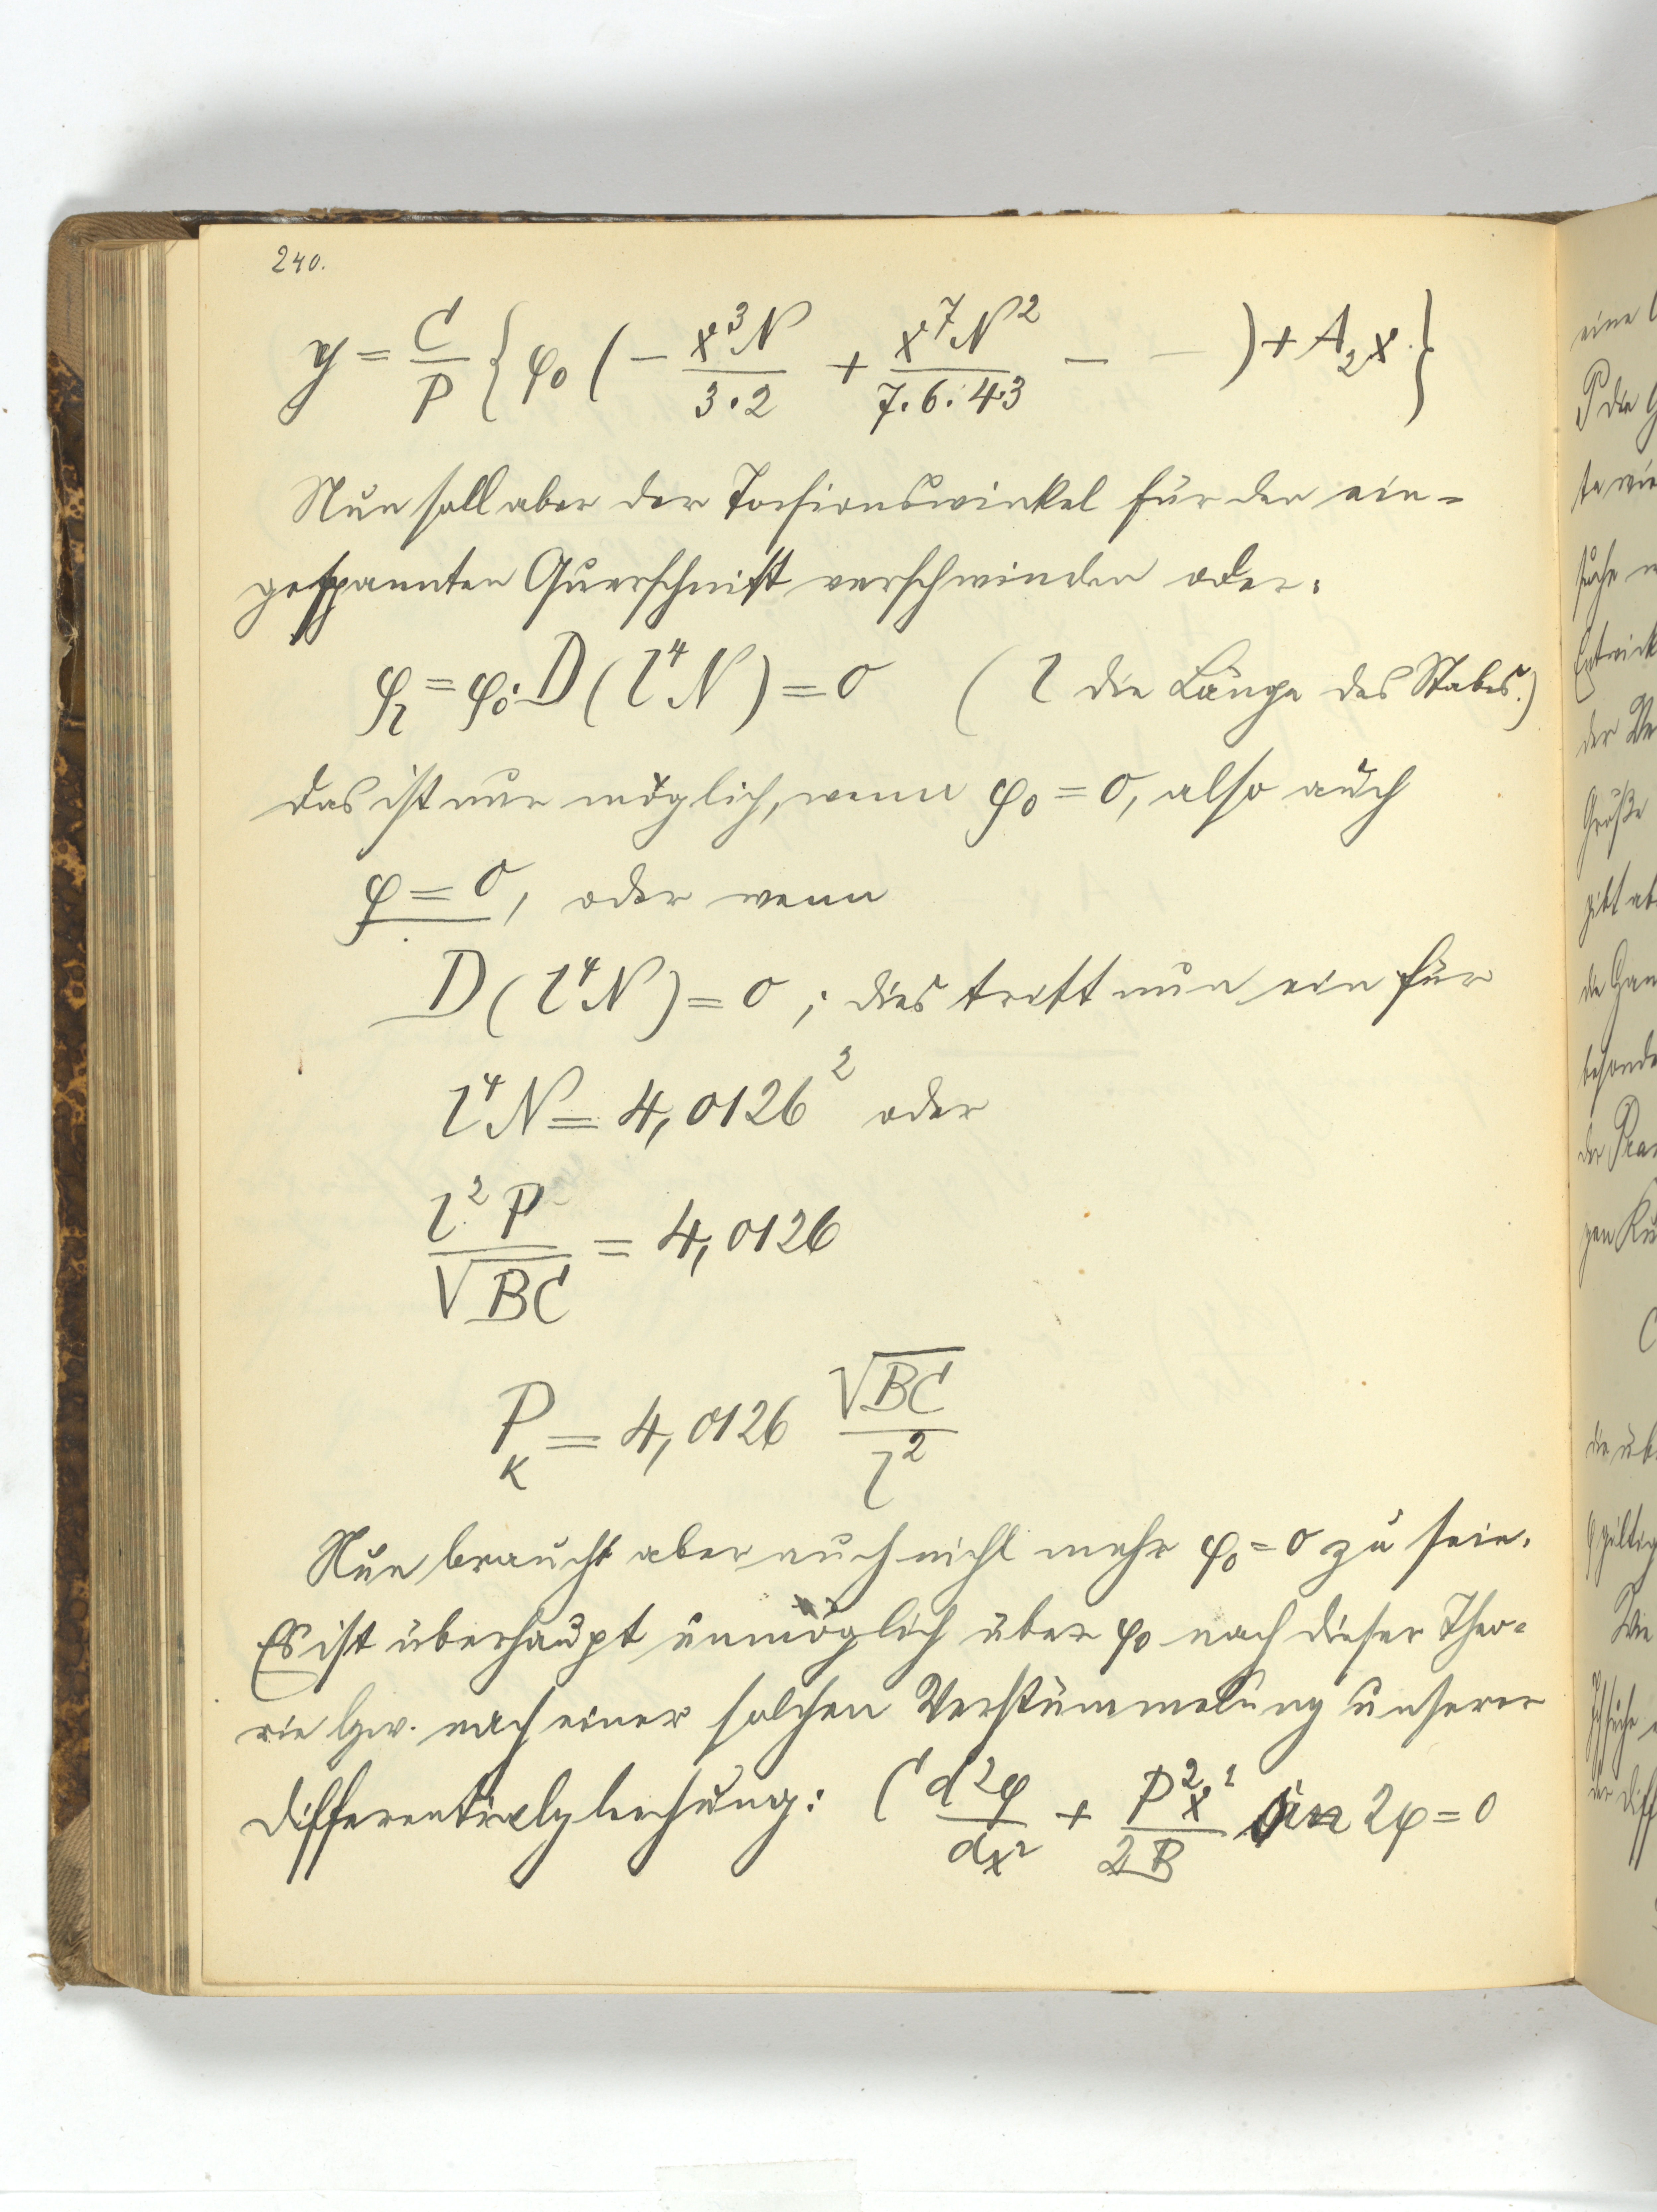 240.
y = C/P { φ₀ ( − x³N/3·2 + x⁷N²/7·6·4·3 − − ) + A₂x }
Nun soll aber der Torsionswinkel für den ein=
gespannten Querschnitt verschwinden oder:
φ_l = φ₀·D(l⁴N) = 0 ( l die Länge des Stabes.)
das ist nur möglich, wenn φ₀ = 0, also auch
φ = 0, oder wenn
D(l⁴N) = 0 ; dies tritt nun ein für
l⁴N = 4,0126² oder
l²P/√BC = 4,0126
P_K = 4,0126 √BC/l²
Nun braucht aber auch nicht mehr φ₀ = 0 zu sein.
Es ist überhaupt unmöglich über φ₀ nach dieser Theo=
rie bzw. nach einer solchen Verstümmelung unserer
Differentialgleichung: C d²φ/dx² + P²x²/2B sin 2φ = 0
eine
P die
te wie
suche
Entwick
der
Größe
gibt ab
die
besonde
der
gen
die
giltig
Wie
Ich suche